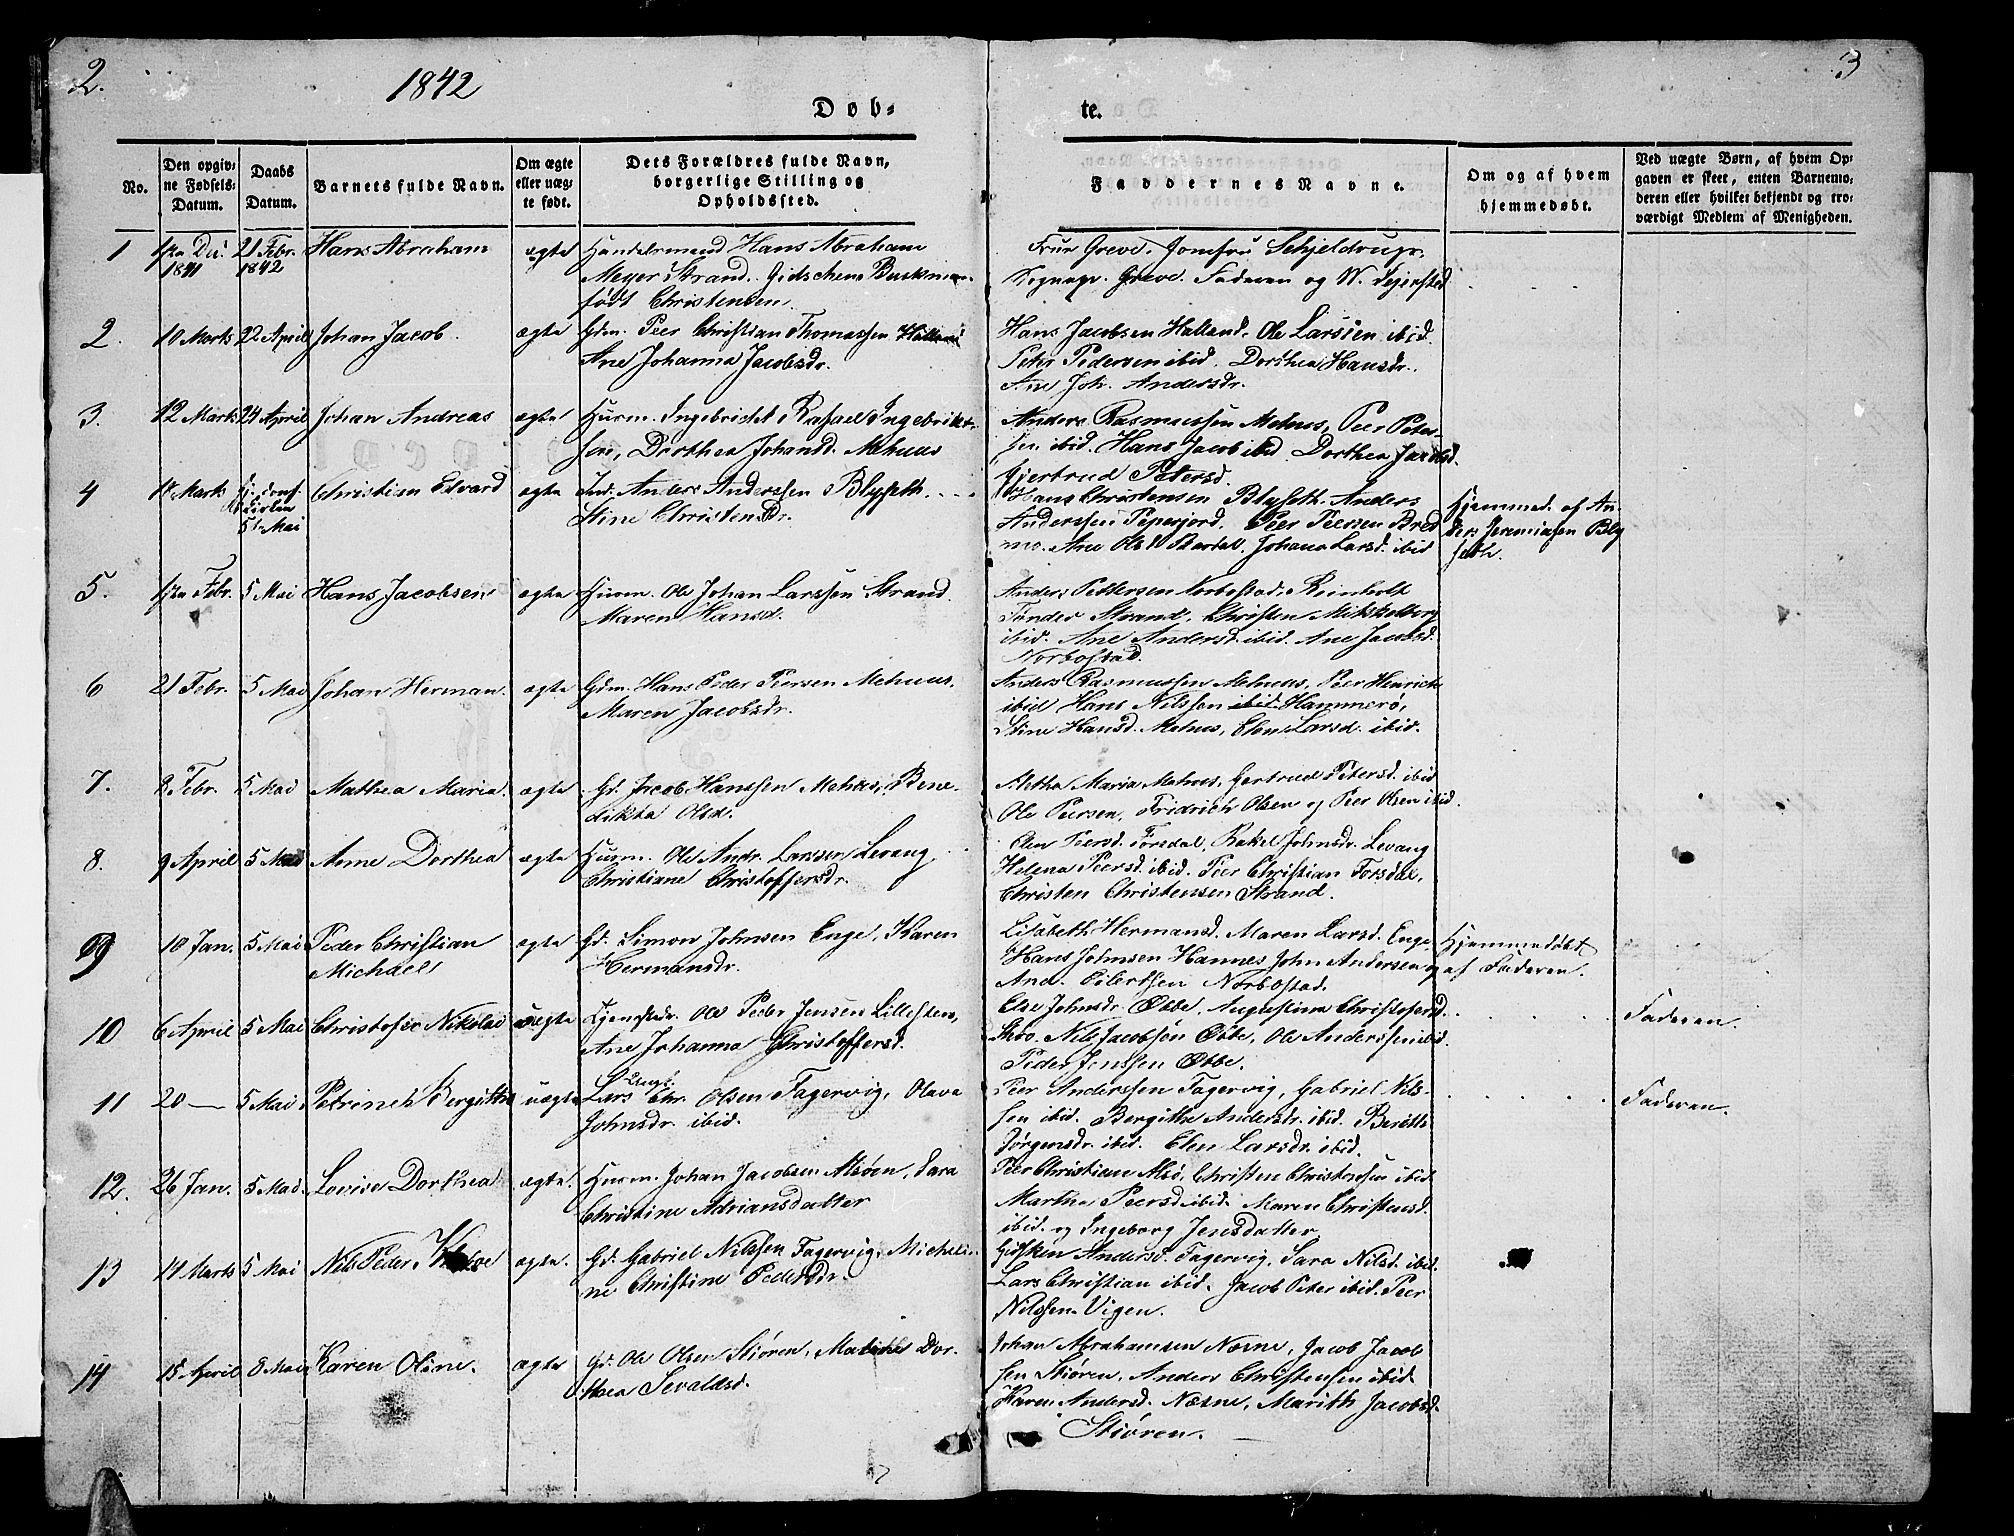 2.
1842
3
Døb-
te.
No.
Den opgiv-
ne Fødsels-
Datum.
Daabs
Datum.
Barnets fulde Navn.
Om ægte
eller uæg-
te født.
Dets Forældres fulde Navn,
borgerlige Stilling og
Opholdssted.
Faddernes Navne.
Om og af hvem
hjemmedøbt.
Ved uægte Børn, af hvem Op-
gaven er skeet, enten Barnemo-
deren eller hvilket bekjendt og tro-
værdigt Medlem af Menigheden.
1
1841
21 Febr.
1842
Hans Abraham
ægte
Handelsmand Hans Abraham
Meyer Strand. Gidschen
født Christensen
Frue Greve, Jomfru Schjeldrup,
Greve. Faderen og W.
2.
10 Marts
22 April
Johan Jacob
ægte
Gdm. Peer Christian Thomassen
Ane Johanna Jacobsdr.
Hans Jacobsen Halland. Ole Larssen ibid.
Peter Pedersen ibid. Dorthea Hansdr.
Ane Joh. Andersdr.
3.
12 Marts
24 April
Johan Andreas
ægte
Husm. Ingebricht Rafael Ingebrikt-
sen, Dorthea Johansd. Mehuus
Anders Rasmussen Mehus, Peer Peter-
sen ibid. Hans Jacob ibd Dorthea Jacobsd.
Gjertrud Petersd.
4
18 Marts
5te Mai
Christian Edvard
ægte
Ind. Anders Anderssen Blyseth.
Stine Christensdr.
Hans Christensen Blyseth. Anders
Anderssen Peer Peersen Bred
mo. Ane Olsd Johana Larsd. ibid
Hjemmed. af An-
ders Jeremiasen Bly
seth.
5.
Febr.
5 Mai
Hans Jacobsen
ægte
Husm. Ole Johan Larssen Strand
Maren Hansd.
Anders Pettersen Norbostad. Reinholt
Tønder Strand, Christen Mikkelborg
ibid. Ane Andersd. ibid. Ane Jacobsd.
Norbostad.
6
21 Febr.
5 Mai
Johan Herman.
ægte
Gdm. Hans Peder Peersen Mehuus,
Maren Jacobsdr.
Anders Rasmussen Mehuus, Peer Henrich
ibid Hans Nilssen ibid Hammerø,
Stine Hansd. Mehus, Elen Larsd. ibid.
7.
2 Febr.
5 Mai
Mathea Maria.
ægte
Gd. Jacob Hanssen Mehus, Bene-
dikta Olsd.
Aletha Maria Mehus, Gertrud Petersd. ibid
Ole Peersen, Fridrich Olsen og Peer Olsen ibid.
8.
9 April
5 Mai
Anne Dorthea
ægte
Husm. Ole Andr. Larssen Levang
Christiane Christoffersdr.
Elen Peersd. Forsdal, Rakel Johnsdr. Levang
Helena Peersd. ibid. Peer Christian Forsdal,
Christen Christensen Strand.
9
10 Jan.
5 Mai
Peder Christian
Michael
ægte
Gd. Simon Johnsen Enge, Karen
Hermansdr.
Lisabeth Hermansd. Maren Larsd. Enge
Hans Johnsen Hannes John Andersen og
And. Eilertsen Norbostad.
Hjemmedøbt
af Faderen.
10
6 April
5 Mai
Christofer Nikolai
uægte
Tjenestedr. Ole Peder Jensen Lillesten,
Ane Johanna Christoffersd.
Else Johnsdr. Øbbe, Augustina Christofersd.
Skoo. Nils Jacobsen Øbbe, Ole Anderssen ibid.
Peder Jenssen Øbbe.
Faderen.
11
20 —
5 Mai
Petrine Bergithe
uægte
Ungk.
Lars Chr. Olsen Fagervig, Olava
Johnsdr. ibid.
Peer Anderssen Fagervig, Gabriel Nils-
sen ibid. Bergithe Andersdr. ibid. Berith
Jørgensdr. ibid. Elen Larsdr. ibid.
Faderen.
12.
26 Jan.
5 Mai
Lovise Dorthea
ægte.
Husm. Johan Jacobsen Alsøen, Sara
Christine Adriansdatter
Peer Christian Alsø, Christen Christofersen ibid
Martha Peersd. ibid. Maren Christensd.
ibid. og Ingeborg Jensdatter
13
14 Marts
5 Mai
Nils Peder
ægte.
Gd. Gabriel Nilssen Fagervig, Micheli-
ne Christine Pedersdr.
Gidsken Andersd. Fagervig, Sara Nilsd. ibid.
Lars Christian ibid. Jacob Peter ibid. Peer
Nilssen Vigen.
14
15 April
8 Mai
Karen Oline.
ægte
Gd. Ole Olsen Stiøren, Malithe Dor-
thea Sevaldsd.
Johan Abrahamsen Næsne, Jacob Jacob
sen Stiøren, Anders Christensen ibid
Karen Andersd. Næsne, Marith Jacobsd.
Stiøren.